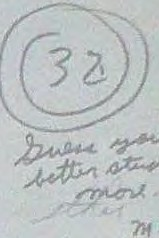 32
Guess you
better stud
more.
M